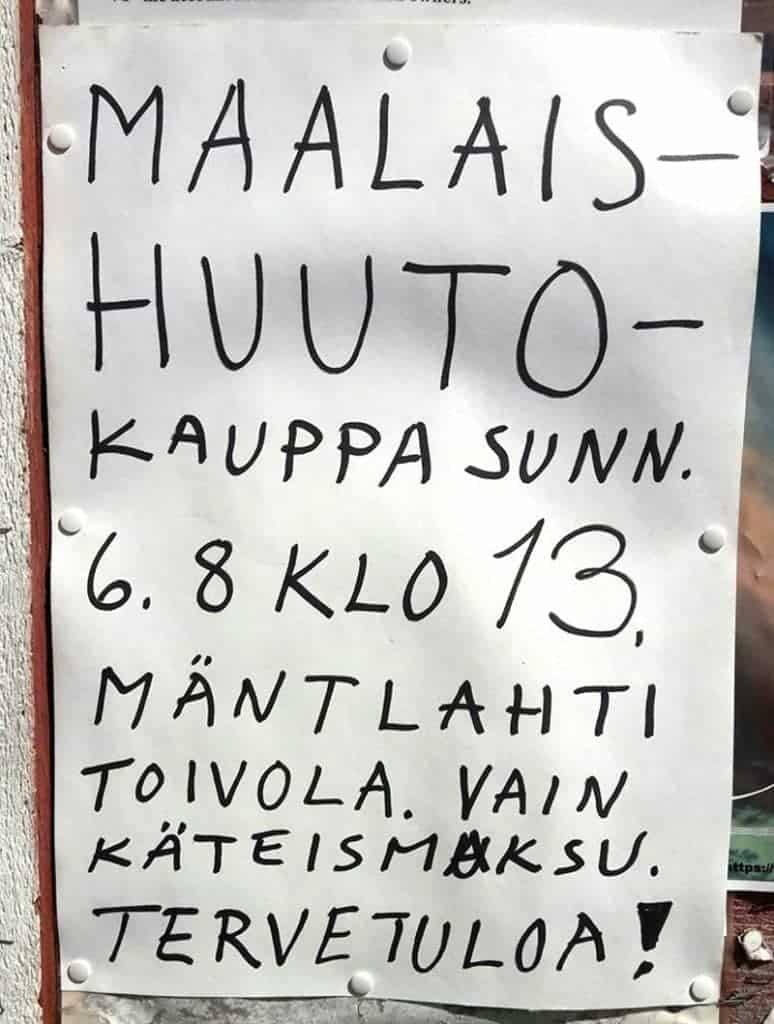 MAALAIS-
HUUTO-
KAUPPA SUNN.
6. 8 KLO 13,
MÄNTLAHTI
TOIVOLA. VAIN
KÄTEISMAKSU.
TERVETULOA!
https://